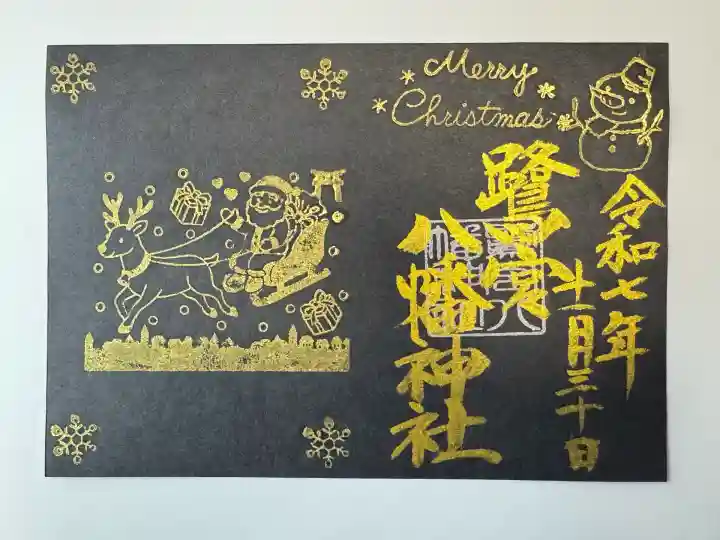 Merry
Christmas
令和七年
十一月三十日
鷺宮
八幡神社